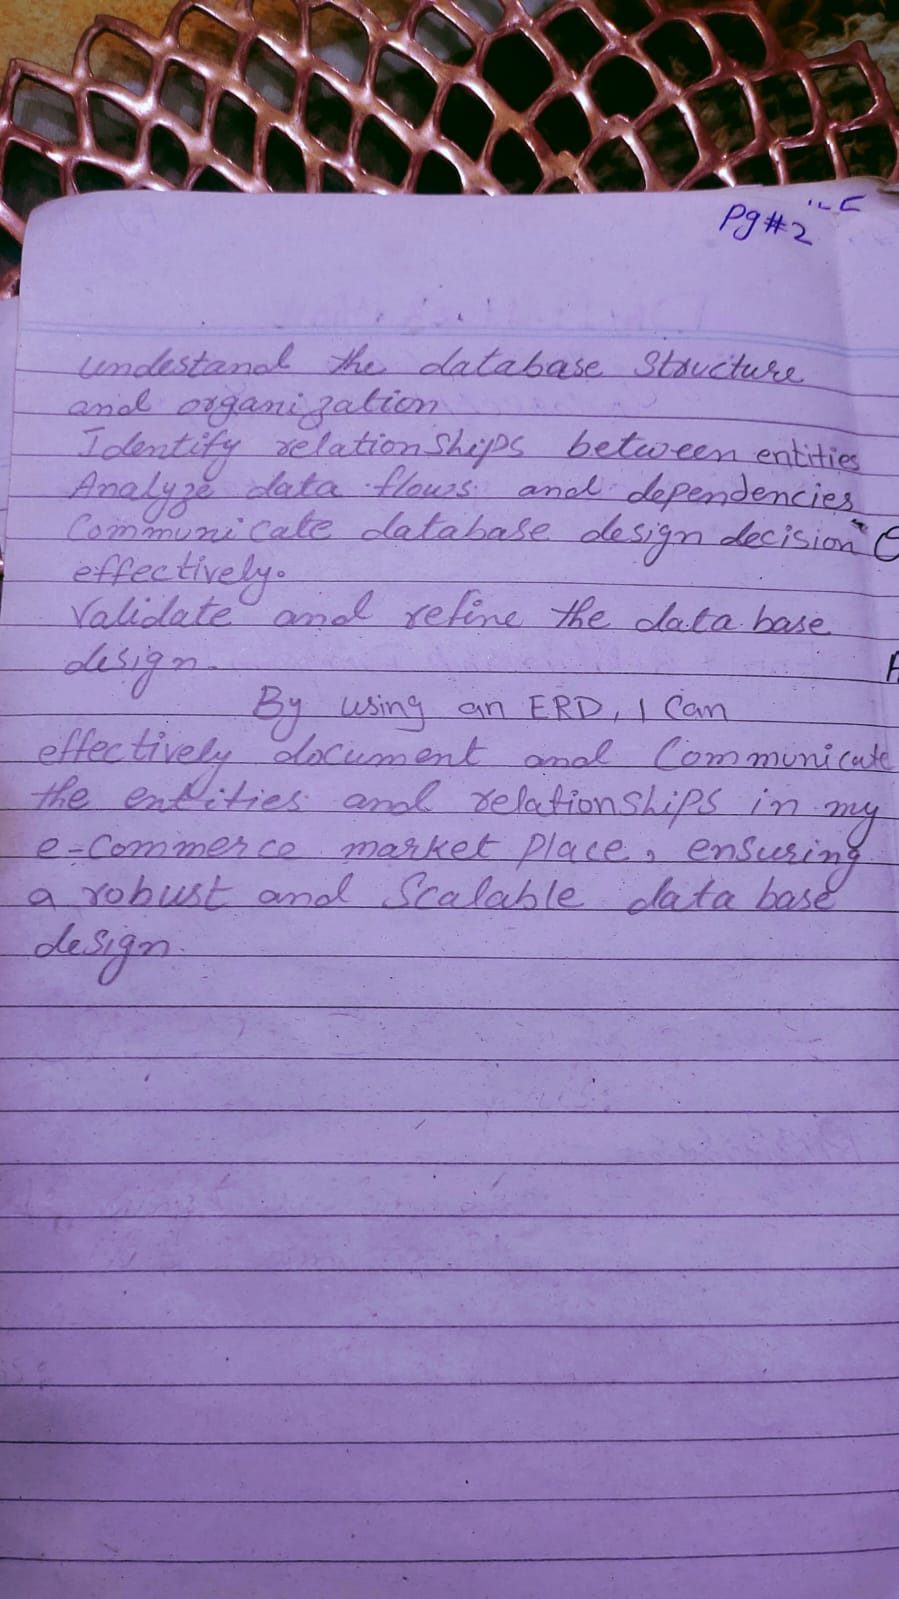 Pg#2
undestand the database Structure
and organization
Identify relationships between entities
Analyze data flows and dependencies
Communicate database design decision
effectively.
Validate and refine the data base
design.
By using an ERD, I Can
effectively document and Communicate
the entities and relationships in my
e-Commerce market place, ensuring
a robust and Scalable data base
design.